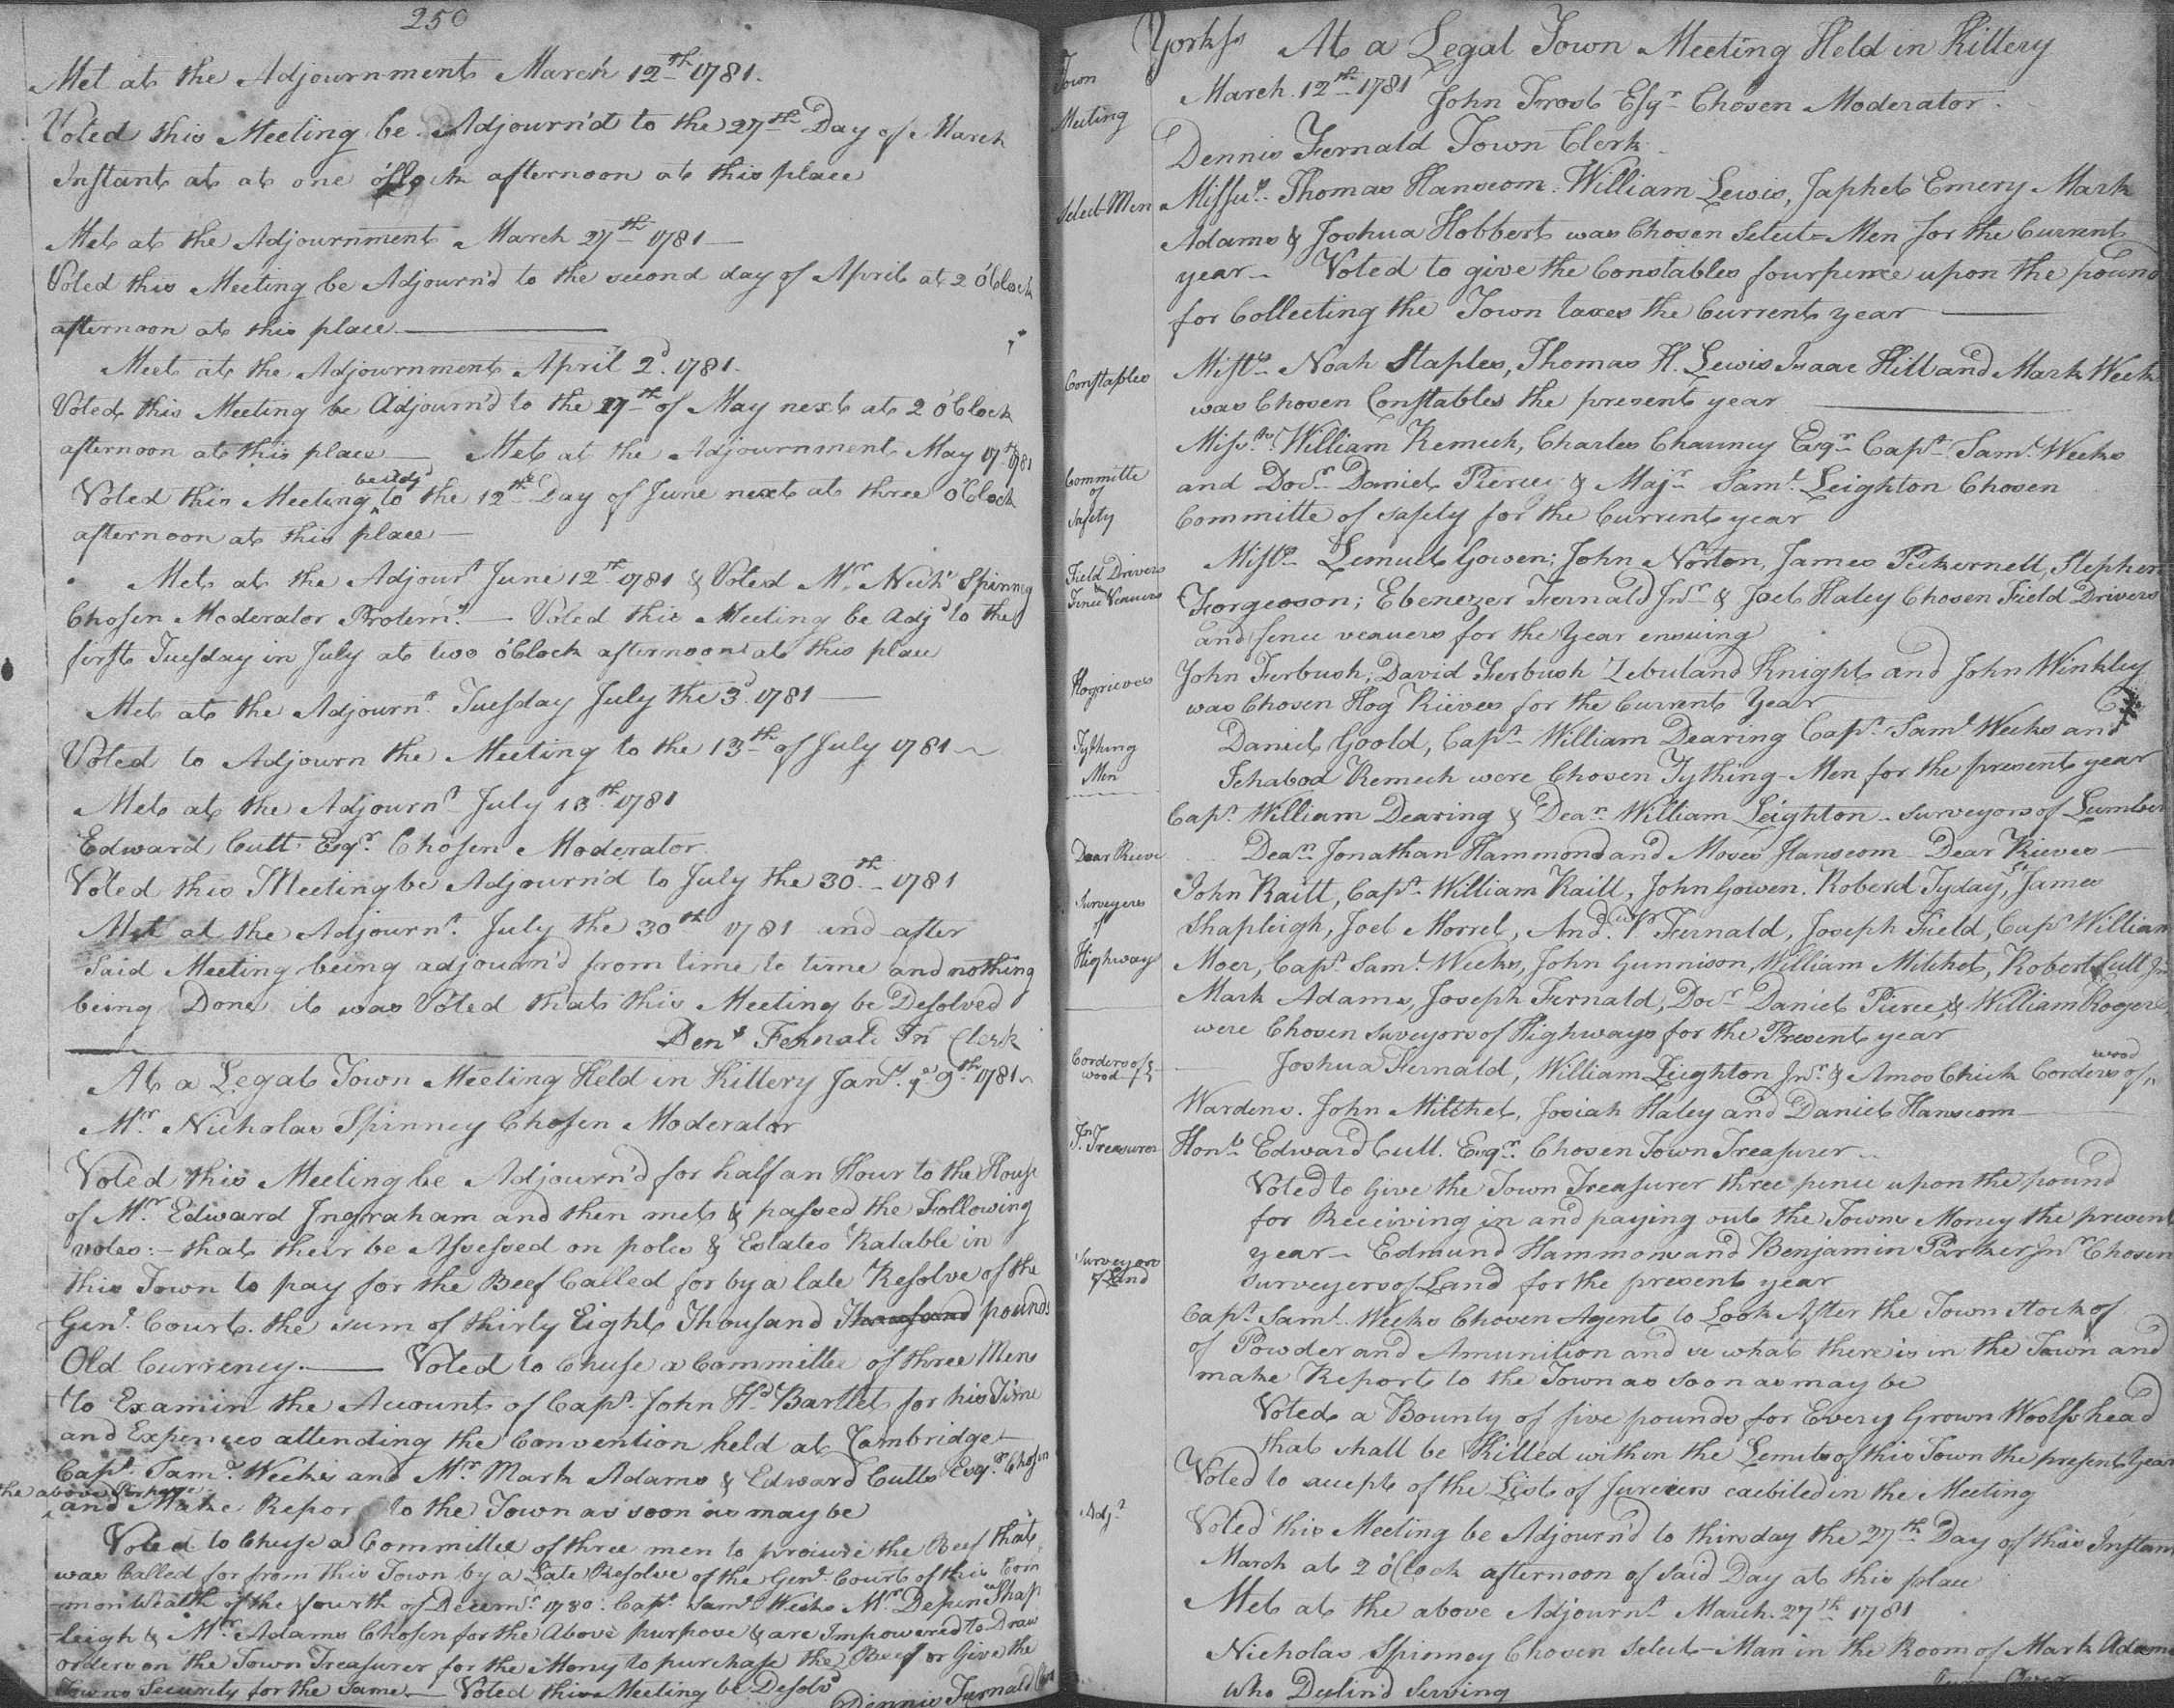 250
Met at the Adjournment March 12th 1781.
Voted this Meeting be Adjourn'd to the 27th Day of March
Instant at at one o'Clock afternoon at this place
Met at the Adjournment March 27th 1781
Voted this Meeting be Adjourn'd to the second day of April at 2 o'Clock
afternoon at this place
Meet at the Adjournment April 2d. 1781.
Voted this Meeting be Adjourn'd to the 17th of May next at 2 o'Clock
afternoon at this place — Met at the Adjournment May 17th 1781
Voted this Meeting be Adj'd to the 12th Day of June next at three o'Clock
afternoon at this place
Met at the Adjournt June 12th 1781 & Voted Mr. Nichs Spinney
Chosen Moderator Protemr. — Voted this Meeting be Adjd to the
first Tuesday in July at two o'Clock afternoon at this place
Met at the Adjournt. Tuesday July the 3d. 1781
Voted to Adjourn the Meeting to the 13th of July 1781
Met at the Adjournt July 13th 1781
Edward Cutt Esqr. Chosen Moderator
Voted this Meeting be Adjourn'd to July the 30th. 1781
Met at the Adjournt. July the 30th 1781 and after
Said Meeting being adjourn'd from time to time and nothing
being Done it was Voted that this Meeting be Desolved
Dens Fernald Tn Clerk
At a Legal Town Meeting Held in Kittery Jany. ye 9th 1781
Mr. Nicholas Spinney Chosen Moderator
Voted this Meeting be Adjourn'd for half an Hour to the House
of Mr. Edward Ingraham and then met & passed the Following
votes:— that their be Assessed on poles & Estates Ratable in
this Town to pay for the Beef Called for by a late Resolve of the
Genl. Court. the sum of thirty Eight Thousand Thousand pounds
Old Currency. — Voted to Chuse a Committee of three Men
to Examin the Account of Capt. John Hd. Bartlet for his Time
and Expences attending the Convention held at Cambridge
Capt. Saml. Weeks and Mr. Mark Adams & Edward Cutts Esqr. Chosen
the above Purpose
and Make Report to the Town as soon as may be
Voted to Chuse a Committee of three men to procure the Beef that
was Called for from this Town by a Late Resolve of the Genl. Court of this Com
mon Wealth of the fourth of Decemr. 1780. Capt. Saml Weeks Mr. Depen Shap
leigh & Mr. Adams Chosen for the Above purpose & are Impowered to Draw
orders on the Town Treasurer for the Mony to purchase the Beef or Give the
Towns Security for the same — Voted this Meeting be Desolvd
Dennis Fernald Clerk
Yorkss At a Legal Town Meeting Held in Kittery
Town
Meeting
March. 12th 1781 John Frost Esqr. Chosen Moderator.
Dennis Fernald Town Clerk
Select Men
Missrs. Thomas Hanscom. William Lewis, Japhet Emery Mark
Adams & Joshua Hobbert was Chosen Select=Men for the Current
year — Voted to give the Constables fourpence upon the pound
for Collecting the Town taxes the Current year
Constables
Mistrs Noah Staples, Thomas H. Lewis Isaac Hill and Mark Weeks
was Chosen Constables the present year
Committe
of
safety
Missrs. William Remich, Charles Chauncy Esqr Capt. Saml. Weeks
and Docr. Daniel Pierce & Majr. Saml. Leighton Chosen
Committe of safety for the Current year
Field Drivers
&
Fence Veauers
Mistrs. Lemuel Gowen; John Norton, James Pickernell, Stephen
Forgeoson; Ebenezer Fernald Jnr. & Joel Haley Chosen Field Drivers
and fence veauers for the Year ensuing
Hogrieves
John Furbush; David Furbush Zebuland Knight and John Winkley
was Chosen Hog Rieves for the Current Year
Tything
Men
Daniel Goold, Capt. William Dearing Capt. Saml Weeks and
Ichabod Remich were Chosen Tything-Men for the present year
Capt. William Dearing & Dean. William Leighton - surveyors of Lumber
Dear Rieve
Dean. Jonathan Hammond and Moses Hanscom - Dear Rieves
Surveyers
of
Highways
John Raitt, Capt. William Raitt, John Gowen. Roberd Tyday, James
Shapleigh, Joel Morrel, And. Fernald, Joseph Field, Capt William
Moer, Capt. Saml. Weeks, John Gunnison, William Mitchel, Robert Cutt Jnr
Mark Adams, Joseph Fernald, Docr. Daniel Pierce, & William Rogers,
were Chosen Suveyors of Highways for the Present year
Corders of
wood
Joshua Fernald, William Lieghton Jnr. & Amos Chick Corders of wood
Wardens. John Mitthel, Josiah Haley and Daniel Hanscom
Tn. Treasurer
Honl. Edward Cutt. Esqr. Chosen Town Treasurer
Voted to Give the Town Treasurer three pence upon the pound
for Receiving in and paying out the Towns Money the present
Surveyors
of Land
year — Edmund Hammons and Benjamin Parker Jnr Chosen
surveyers of Land for the present year
Capt. Saml. Weeks Chosen Agent to Look After the Town stock of
of Powder and Amunition and se what there is in the Town and
make Report to the Town as soon as may be
Voted a Bounty of five pounds for Every Grown Woolfs head
that shall be Killed within the Lemits of this Town the present Year
Voted to accept of the List of Jureiers exebited in the Meeting
Adjt.
Voted this Meeting be Adjourn'd to thirsday the 27th Day of this Instant
March at 2 o'Clock afternoon of said Day at this place
Met at the above Adjournt March. 27th 1781
Nicholas Spinney Chosen Select-Man in the Room of Mark Adams
who Declin'd Serving
Turn Over